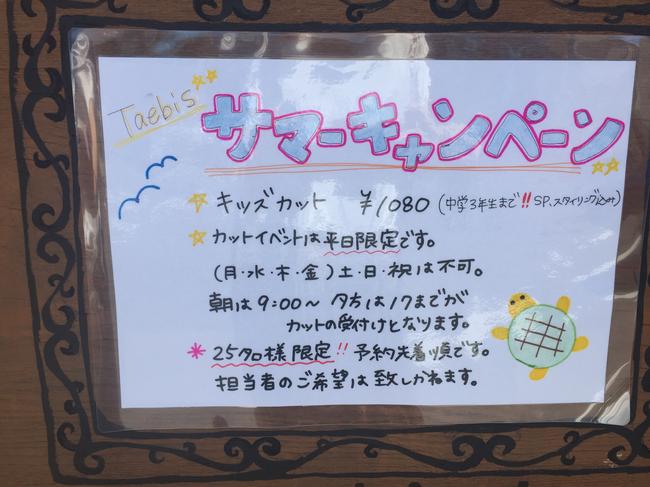 Taebis
サマーキャンペーン
キッズカット ¥1080 (中学3年生まで!! SP、スタイリング込み)
カットイベントは平日限定です。
(月・水・木・金) 土・日・祝は不可。
朝は9:00〜 夕方は17までが
カットの受付けとなります。
*25名様限定!! 予約先着順です。
担当者のご希望は致しかねます。